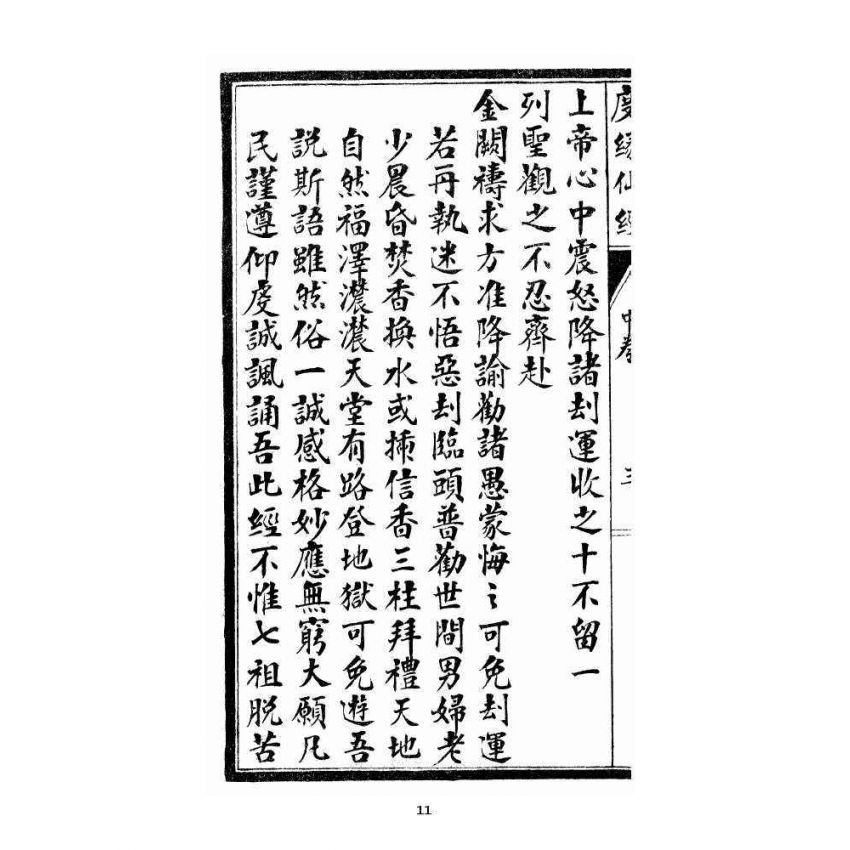 度緣仙經
中卷
三
上帝心中震怒降諸刦運收之十不留一
列聖觀之不忍齊赴
金闕禱求方准降諭勸諸愚蒙悔之可免刦運
若再執迷不悟惡刦臨頭普勸世間男婦老
少晨昏焚香換水或揷信香三柱拜禮天地
自然福澤濃濃天堂有路登地獄可免遊吾
說斯語雖然俗一誠感格妙應無窮大願凡
民謹遵仰虔誠諷誦吾此經不惟七祖脫苦
11